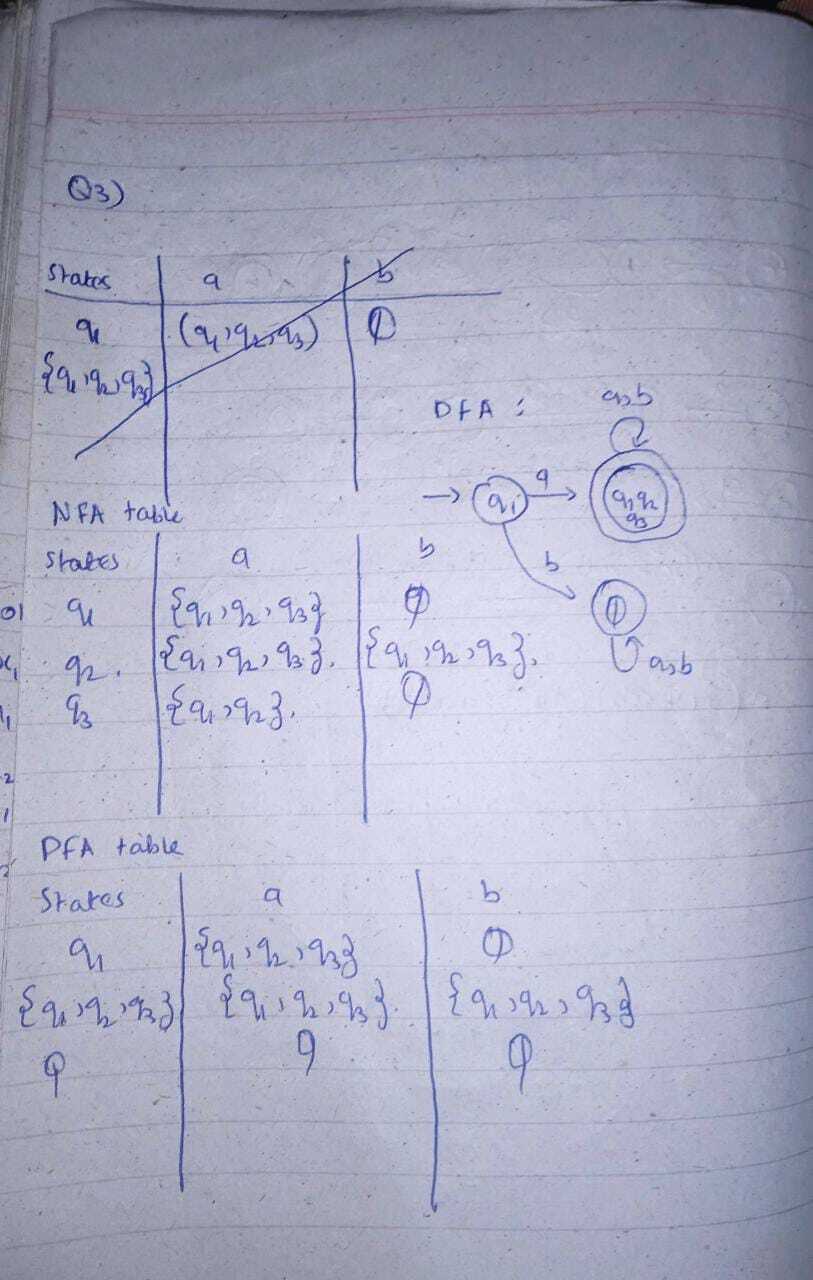 Q3)
States a b
q1 (q1, q2, q3) Φ
{q1, q2, q3}
DFA :
a,b
→ q1 a → q1 q2 q3
b
Φ
a,b
NFA table
States a b
q1 {q1, q2, q3} Φ
q2. {q1, q2, q3}. {q1, q2, q3}.
q3 {q1, q2}. Φ
DFA table
States a b
q1 {q1, q2, q3} Φ
{q1, q2, q3} {q1, q2, q3}. {q1, q2, q3}
Φ Φ Φ